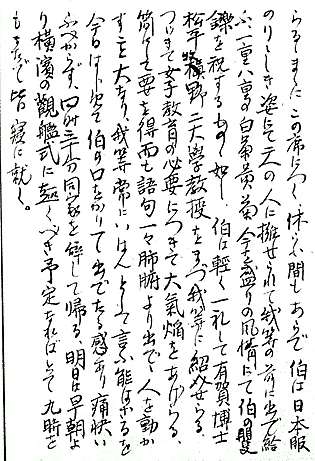 らるゝまゝにこの席につく、休らふ間もあらで伯は日本服
のりゝしき姿にて二人の人に擁せられて我等の前に出で給
ふ、一重八重の白菊黄菊今を盛りの風情にて伯の矍
鑠を祝するものゝ如し、伯は軽く一礼して有賀博士
松平 牧野二大學教授をまづ我等に紹介せらる、
つゞきて女子教育の必要につきて大氣焔をあげらる、
簡にして要を得而も語句一々肺腑より出でゝ人を動か
すこと大なり、我等常にいはんとして言ふ能はざるを
今日はじめて伯の口をかりて出でたる感あり痛快い
ふべからず、四時三十分同家を辞して帰る、明日は早朝よ
り横濱の觀艦式に赴くべき予定なればとて九時を
もまたで皆寝に就く。